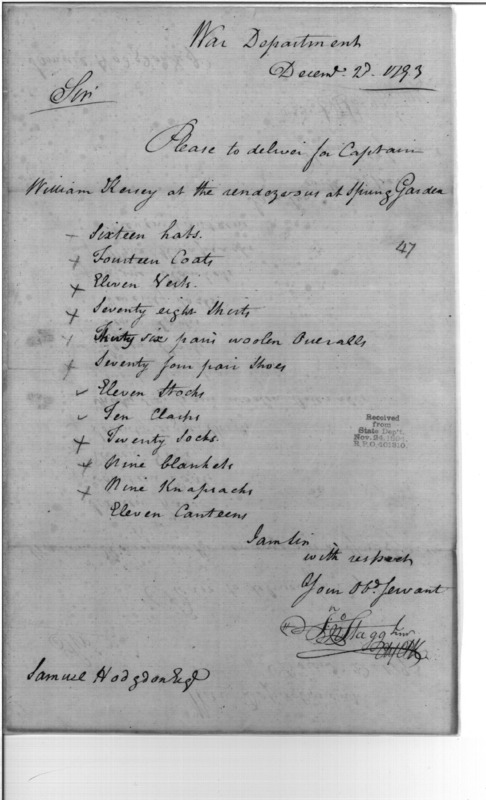 War Department
Decemr. 2d. 1793
Sir
Please to deliver for Captain
William Kersey at the rendezvous at Spring Garden
47
Sixteen hats.
Fourteen Coats
Eleven Vests.
Seventy eight Shirts
Thirty six pairs woolen Overalls
Seventy four pair Shoes
Eleven Stocks
Ten Clasps
Twenty Socks.
Nine blankets
Nine Knapsacks
Eleven Canteens
Received
from
State Dep't.
Nov. 24, 1904
R.P.O. 401310.
I am Sir
with respect
Your Obd. Servant
Jno Stagg Junr
Samuel Hodgdon Esqr.